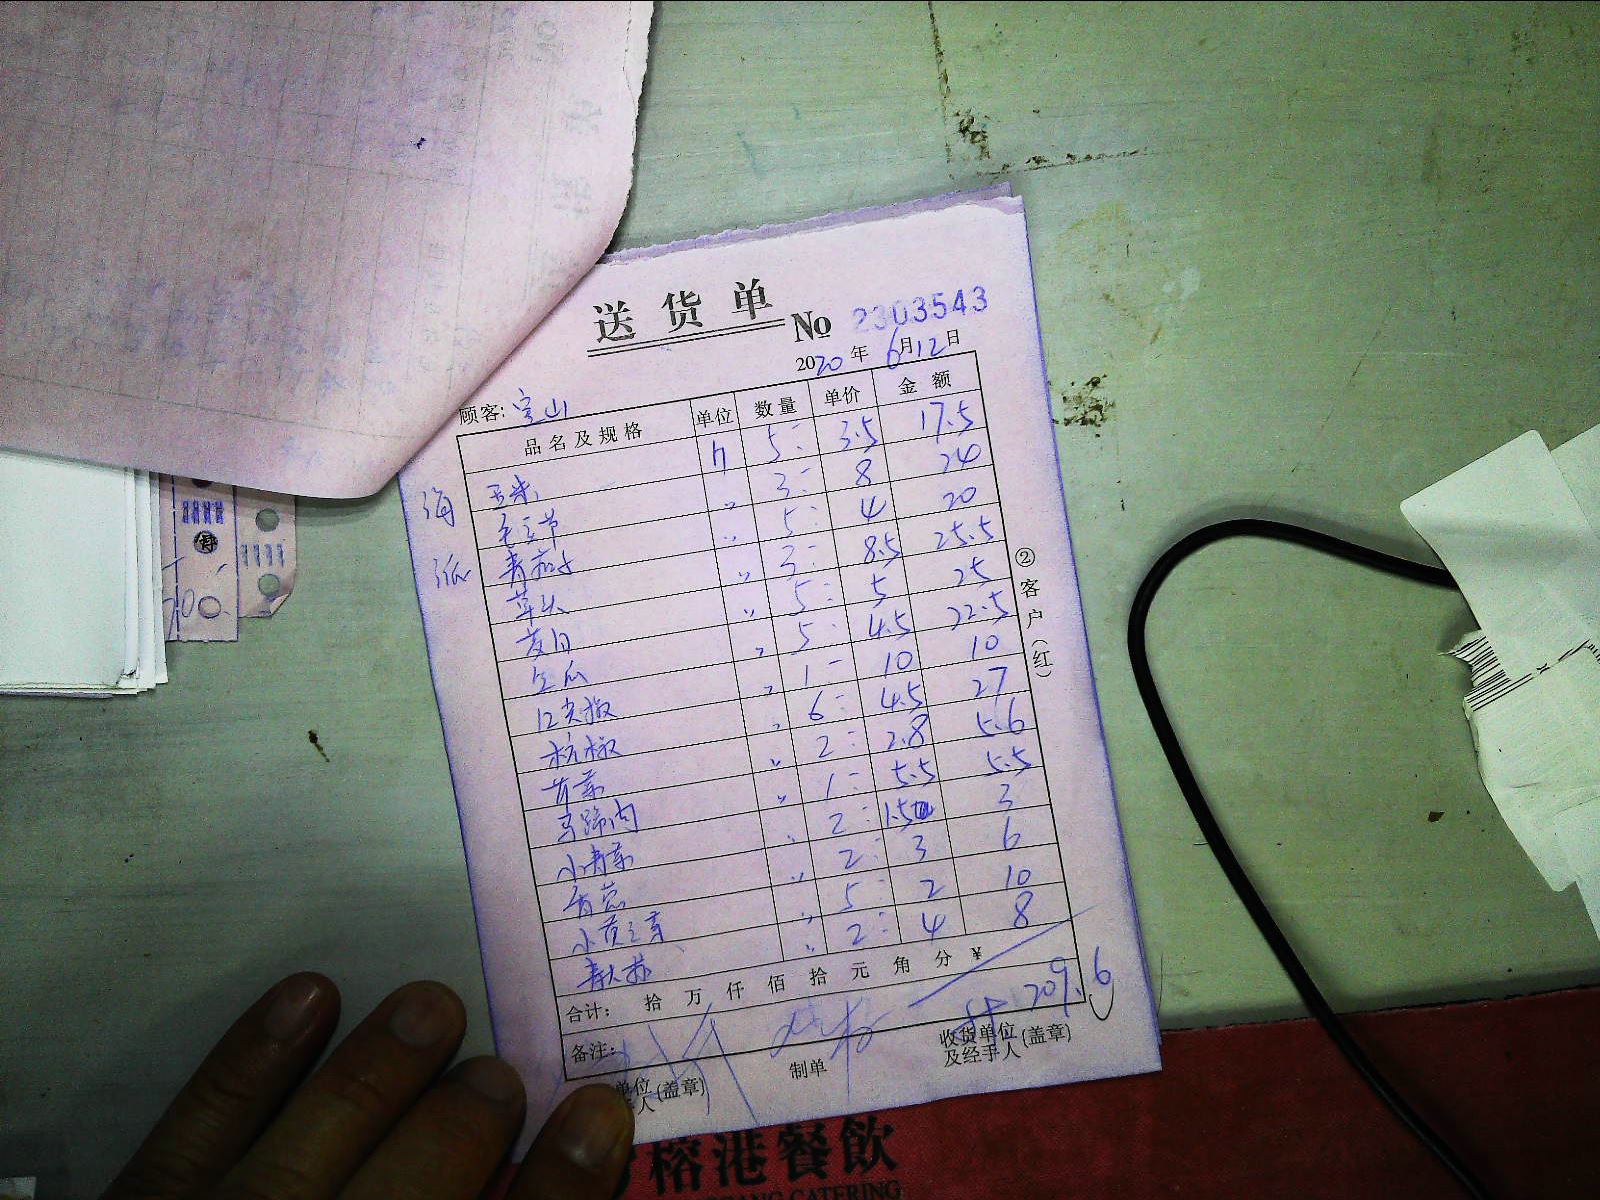 送货单
No 2303543
2020年6月12日
顾客: 宝山
品名及规格 单位 数量 单价 金额
玉米 5 3.5 17.5
毛豆节 〃 3 8 24
青茄子 〃 5 4 20
草头 〃 3 8.5 25.5
黄白 〃 5 5 25
冬瓜 〃 5 4.5 22.5
红尖椒 〃 1 10 10
杭椒 〃 6 4.5 27
芹菜 〃 2 2.8 5.6
马蹄肉 〃 1 5.5 5.5
小青菜 〃 2 1.5 3
香葱 〃 2 3 6
小黄豆芽 〃 5 2 10
青大蒜 〃 2 4 8
合计: 拾 万 仟 佰 拾 元 角 分 ¥
209.6
备注:
单位(盖章) 制单 收货单位(盖章)
及经手人
②客户(红)
榕港餐飲
CATERING